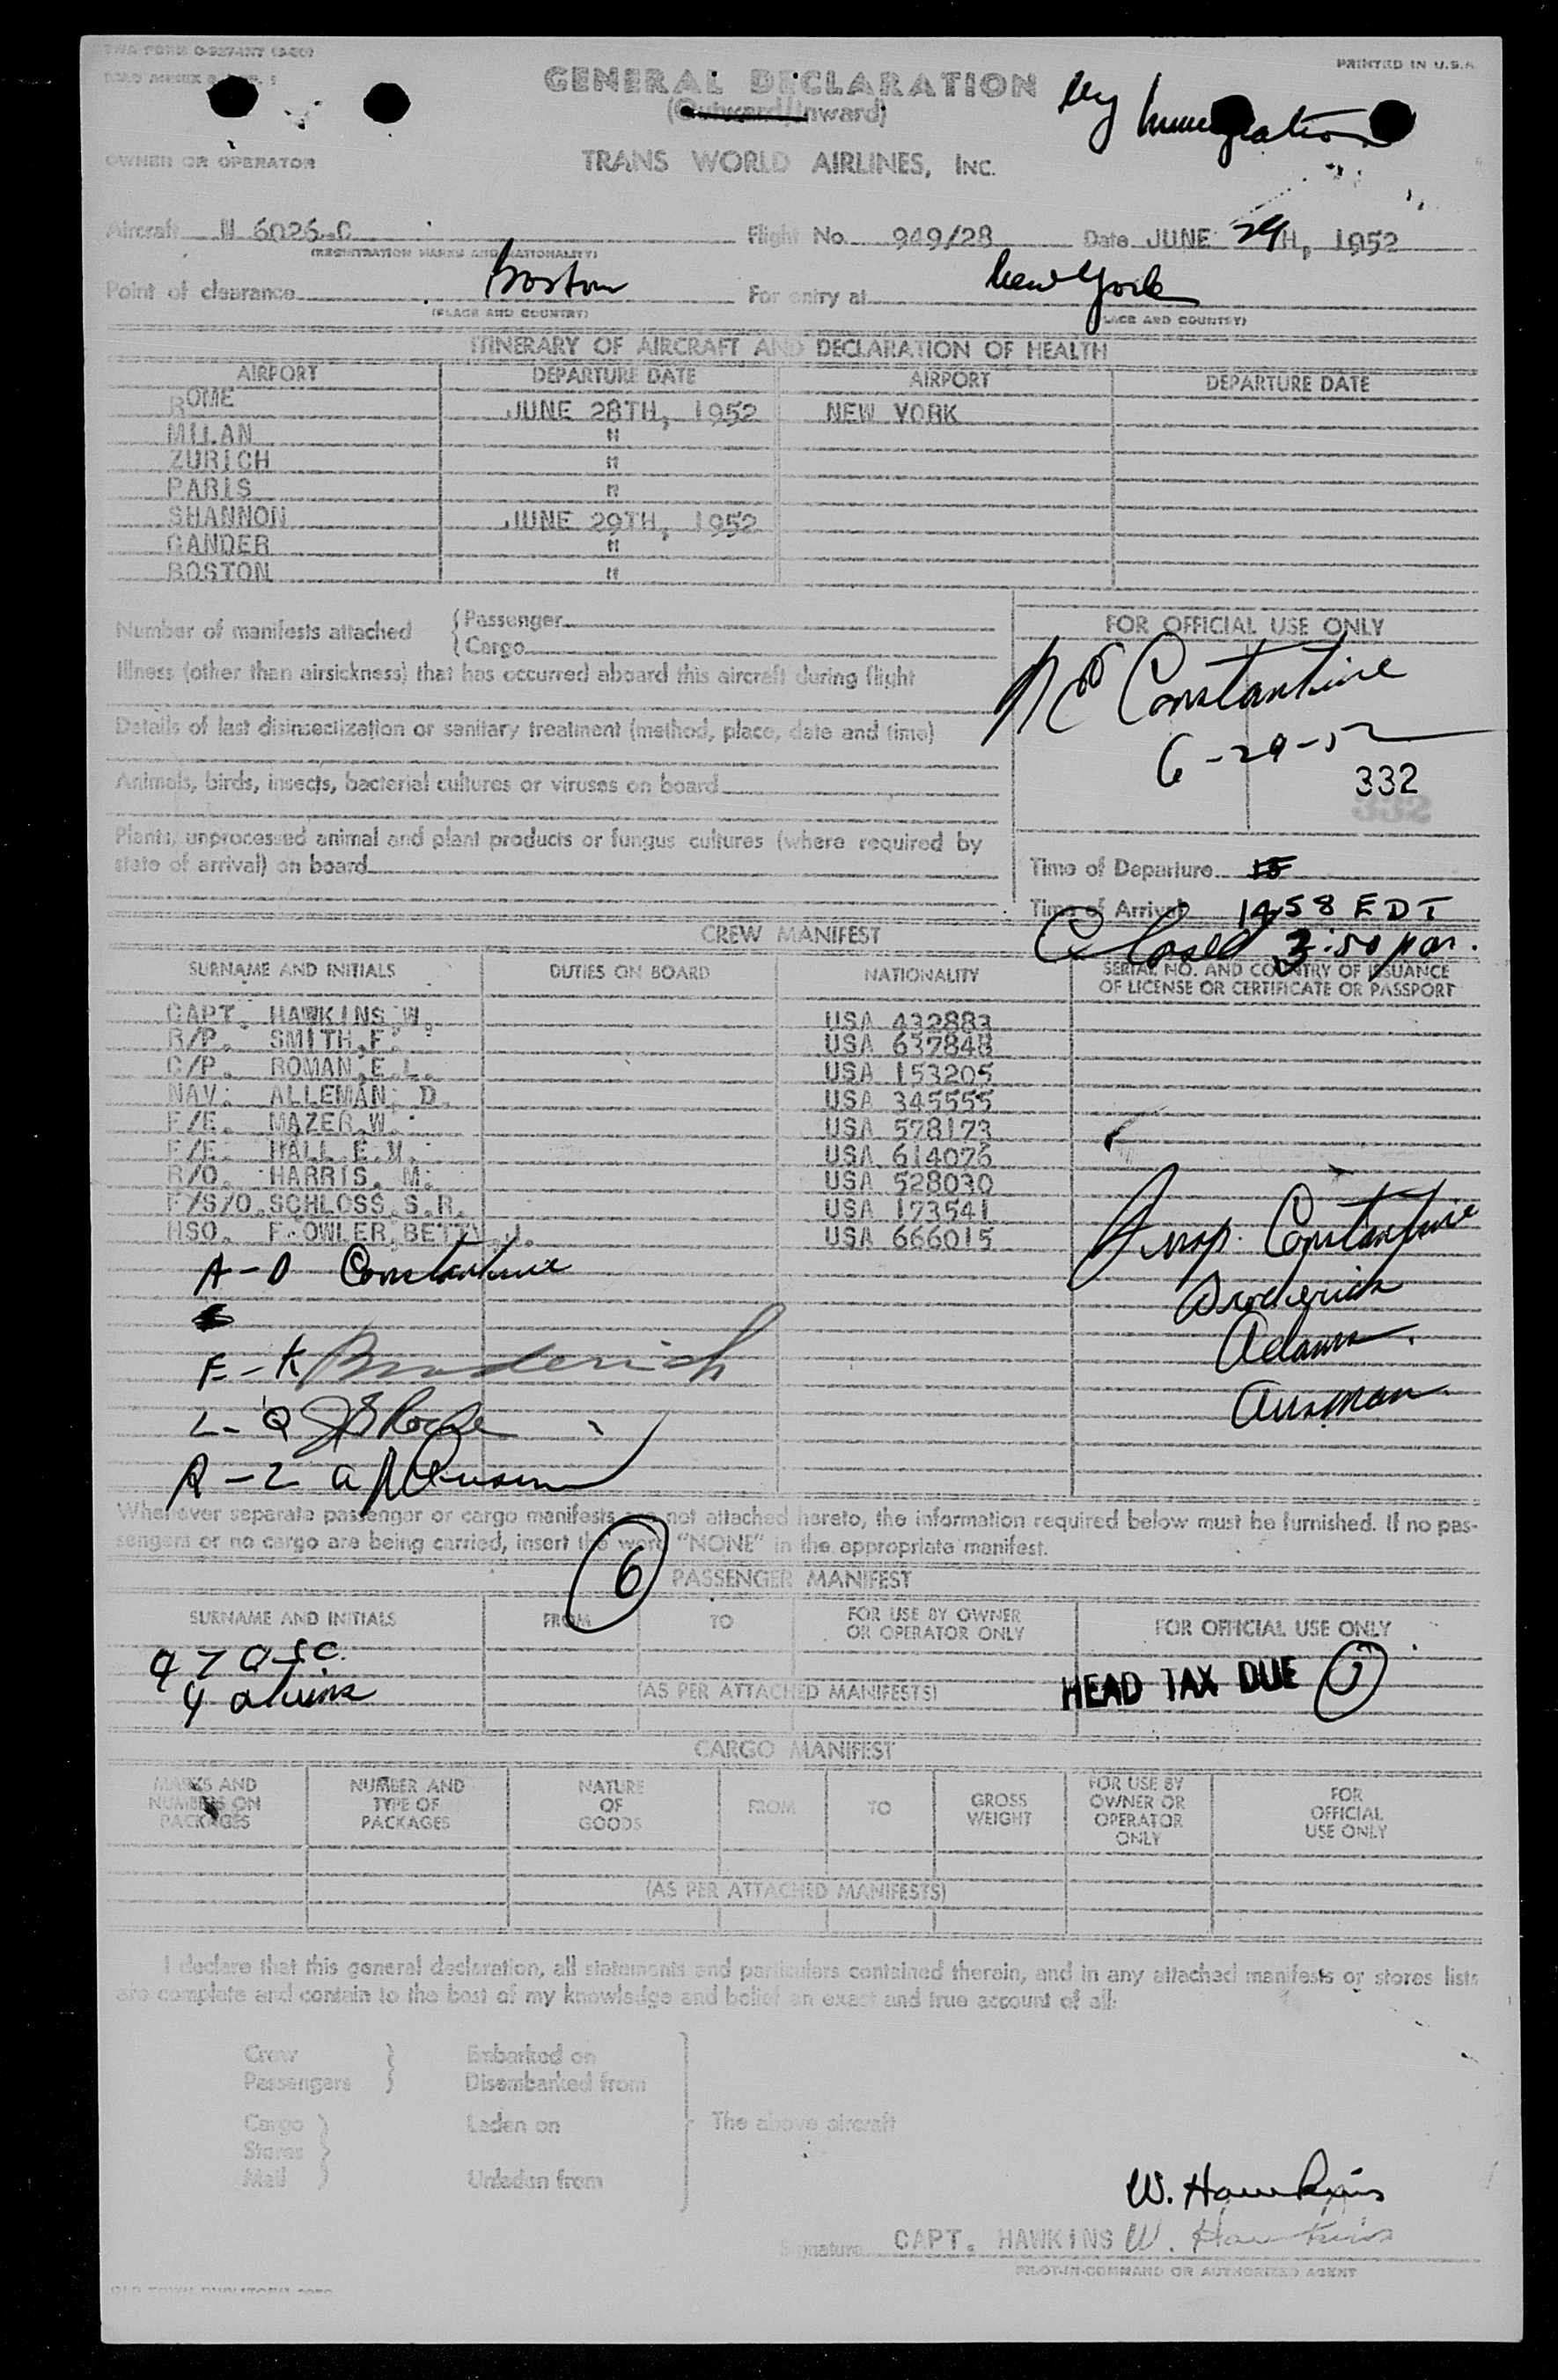 TWA FORM
PRINTED IN U.S.A.
GENERAL DECLARATION
(Outward/Inward)
NY Immigration
OWNER OR OPERATOR
TRANS WORLD AIRLINES, INC.
Aircraft N 6026 C Flight No. 949/28 Date JUNE 29TH, 1952
(REGISTRATION MARKS AND NATIONALITY)
Point of clearance Boston For entry at New York
(PLACE AND COUNTRY) (PLACE AND COUNTRY)
ITINERARY OF AIRCRAFT AND DECLARATION OF HEALTH
AIRPORT DEPARTURE DATE AIRPORT DEPARTURE DATE
ROME JUNE 28TH, 1952 NEW YORK
MILAN "
ZURICH "
PARIS "
SHANNON JUNE 29TH, 1952
GANDER "
BOSTON "
Number of manifests attached { Passenger
{ Cargo
FOR OFFICIAL USE ONLY
Illness (other than airsickness) that has occurred aboard this aircraft during flight
Constantine
Details of last disinsectization or sanitary treatment (method, place, date and time)
6-29-52
Animals, birds, insects, bacterial cultures or viruses on board
332
Plants, unprocessed animal and plant products or fungus cultures (where required by
state of arrival) on board
Time of Departure
Time of Arrival 1458 EDT
Closed 3:50 pm.
CREW MANIFEST
SURNAME AND INITIALS DUTIES ON BOARD NATIONALITY SERIAL NO. AND COUNTRY OF ISSUANCE
OF LICENSE OR CERTIFICATE OR PASSPORT
CAPT. HAWKINS W. USA 432883
R/P. SMITH,F. USA 637848
C/P. ROMAN,E.L. USA 153205
NAV. ALLEMAN, D. USA 345555
F/E. MAZER,W. USA 578173
F/E. HALL E.M. USA 614076
R/O. HARRIS, M. USA 528030
F/S/O.SCHLOSS,S.R. USA 173541
HSO. FOWLER,BETTY J. USA 666015
A-D Constantine
Insp. Constantine
Broderick
E-K Broderick
Adams
L-Q
Ausman
R-Z
Whenever separate passenger or cargo manifests are not attached hereto, the information required below must be furnished. If no pas-
sengers or no cargo are being carried, insert the word "NONE" in the appropriate manifest.
6
PASSENGER MANIFEST
SURNAME AND INITIALS FROM TO FOR USE BY OWNER
OR OPERATOR ONLY FOR OFFICIAL USE ONLY
4 aliens
(AS PER ATTACHED MANIFESTS)
HEAD TAX DUE 1
CARGO MANIFEST
MARKS AND
NUMBERS ON
PACKAGES
NUMBER AND
TYPE OF
PACKAGES
NATURE
OF
GOODS
FROM
TO
GROSS
WEIGHT
FOR USE BY
OWNER OR
OPERATOR
ONLY
FOR
OFFICIAL
USE ONLY
(AS PER ATTACHED MANIFESTS)
I declare that this general declaration, all statements and particulars contained therein, and in any attached manifests or stores lists
are complete and contain to the best of my knowledge and belief an exact and true account of all:
Crew } Embarked on
Passengers } Disembarked from
Cargo } Laden on The above aircraft
Stores }
Mail } Unladen from
W. Hawkins
Signature CAPT. HAWKINS W. Hawkins
PILOT-IN-COMMAND OR AUTHORIZED AGENT